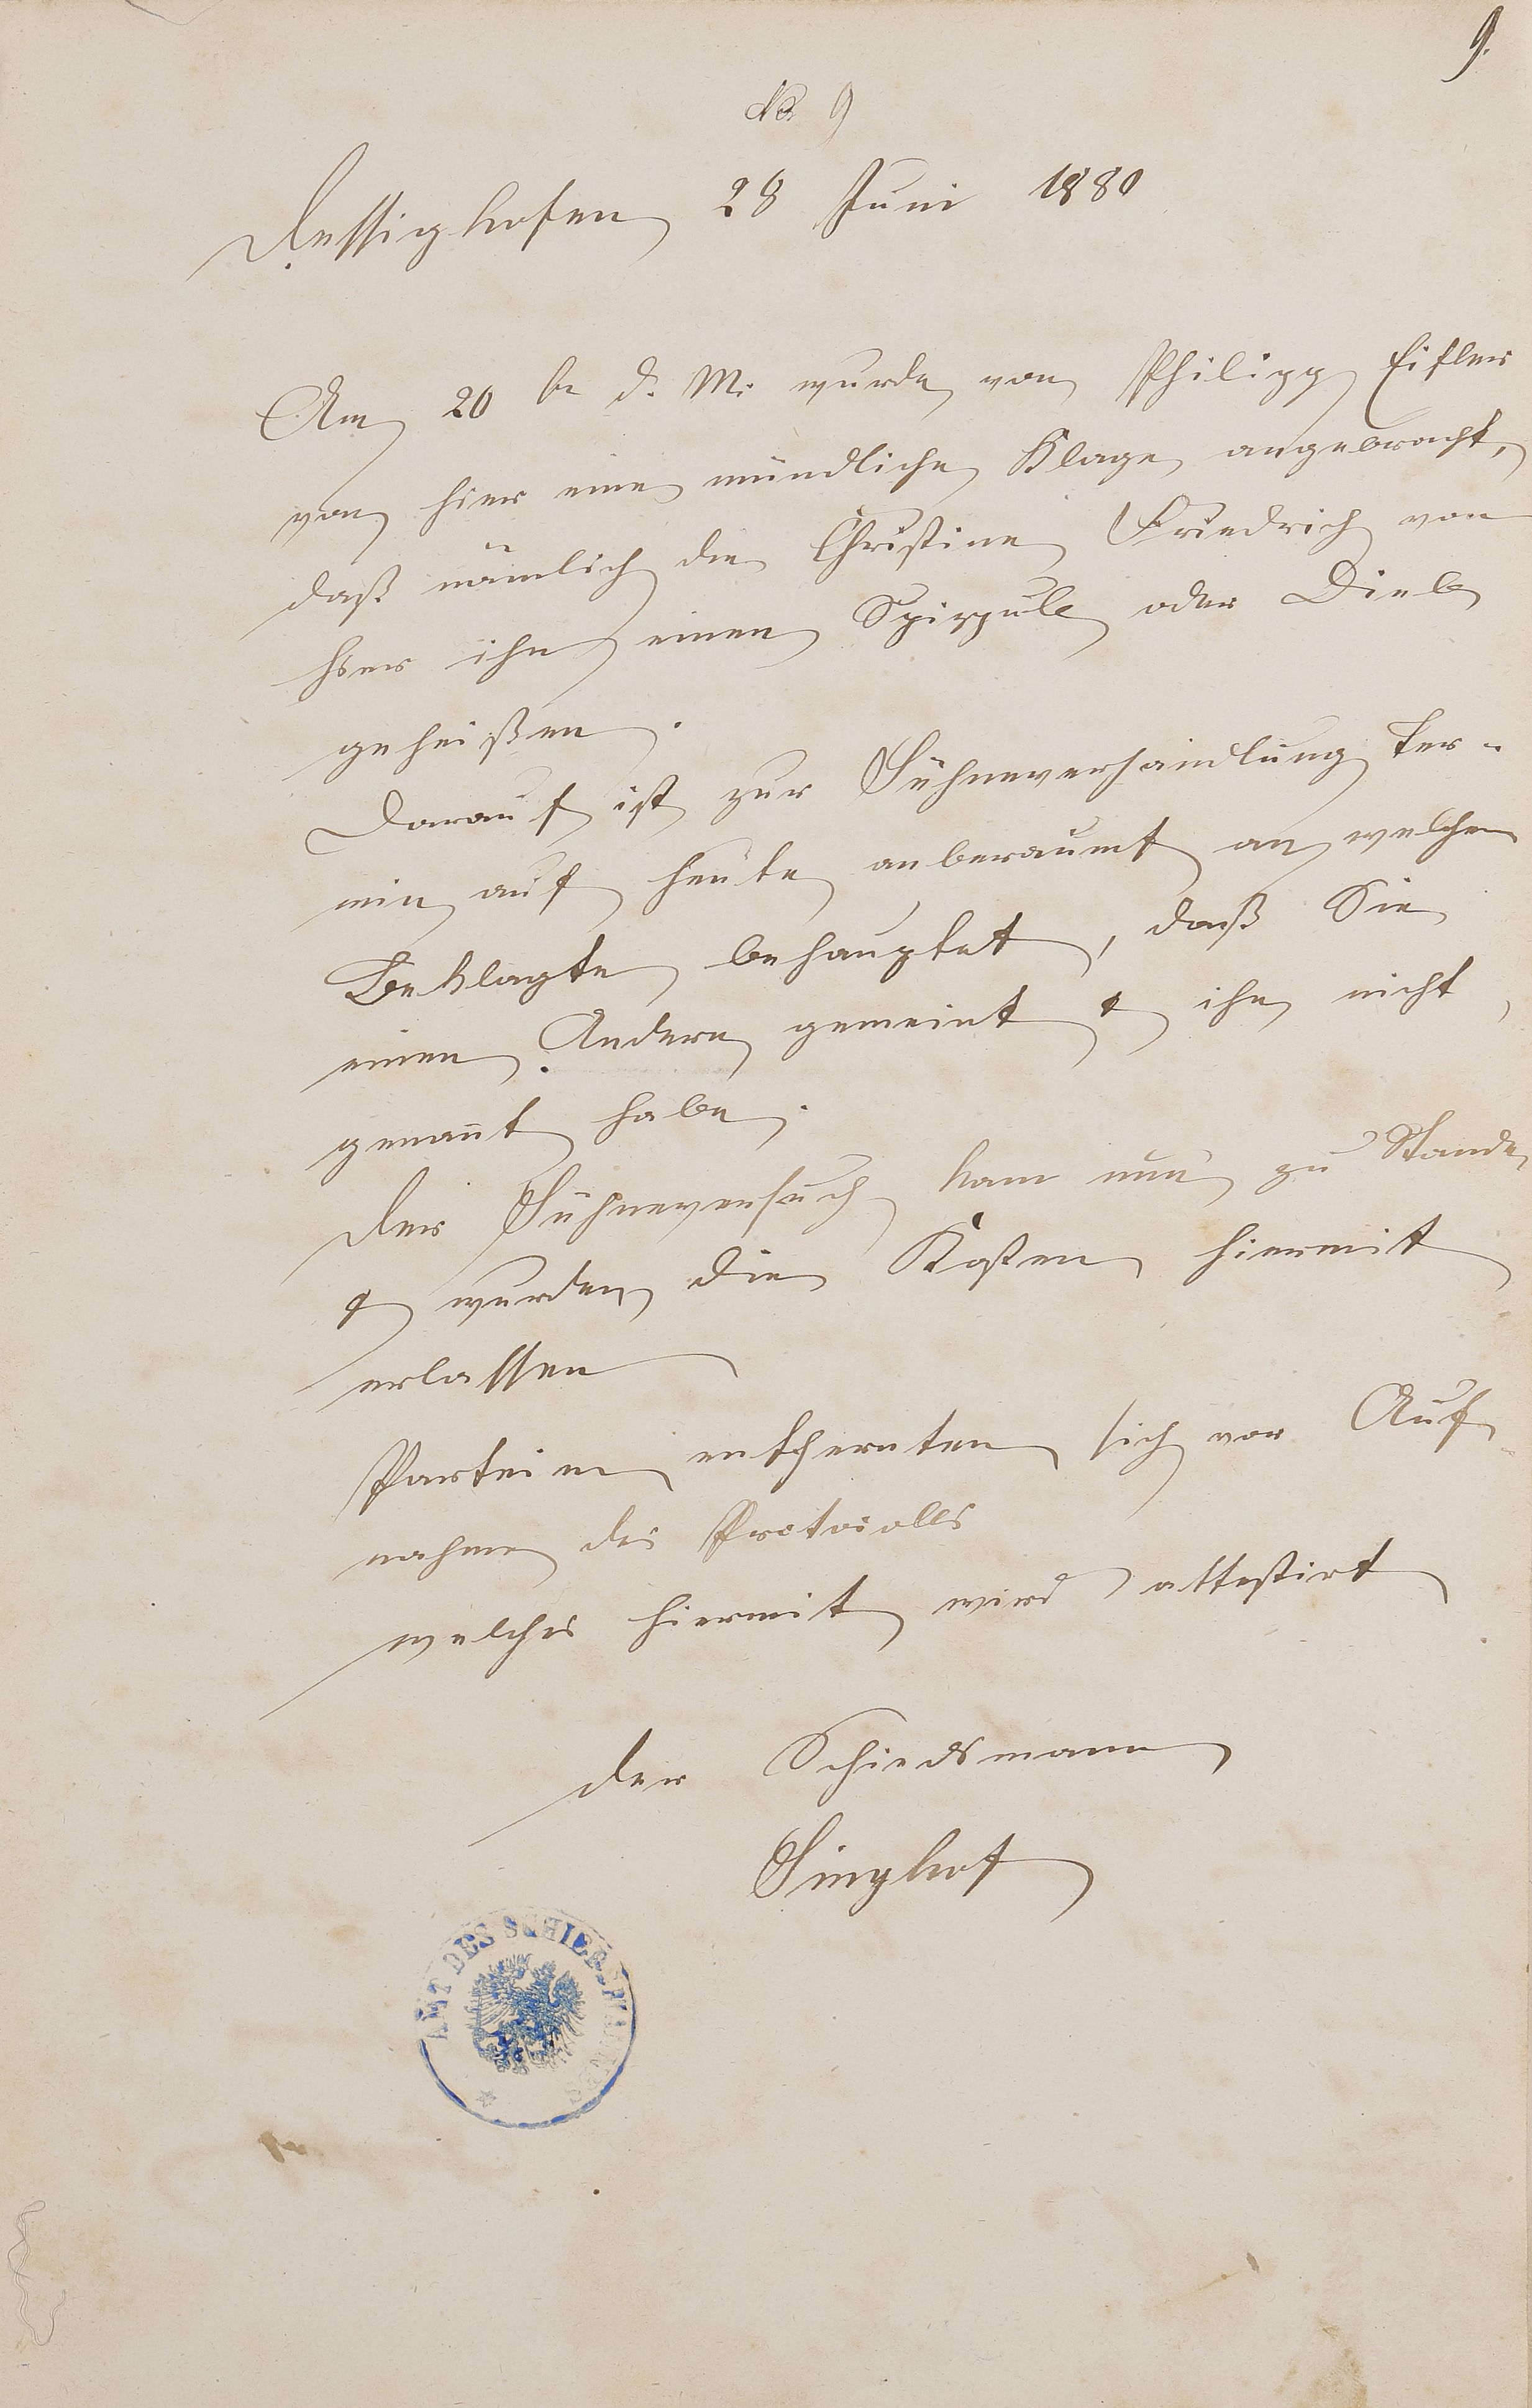 9.
No 9
Dessighofen 28 Juni 1880
Am 20 ten d. M. wurde von Philipp Eifler
von hier eine mündliche Klage angebracht,
daß nämlich die Christine Friedrich von
hier ihn einen Spitzbub oder Dieb
geheißen.
Darauf ist zur Sühneverhandlung Ter-
min auf heute anberaumt an welchem
Beklagte behauptet, daß Sie
einen Andern gemeint & ihn nicht
genannt habe.
Der Sühneversuch kam nun zu Stande
& wurden die Kosten hiermit
erlassen
Parteien entfernten sich vor Auf-
nahme des Protocolls
welches hiermit wird attestirt
der Schiedsmann
Singhof
AMT DES SCHIEDSMANNES